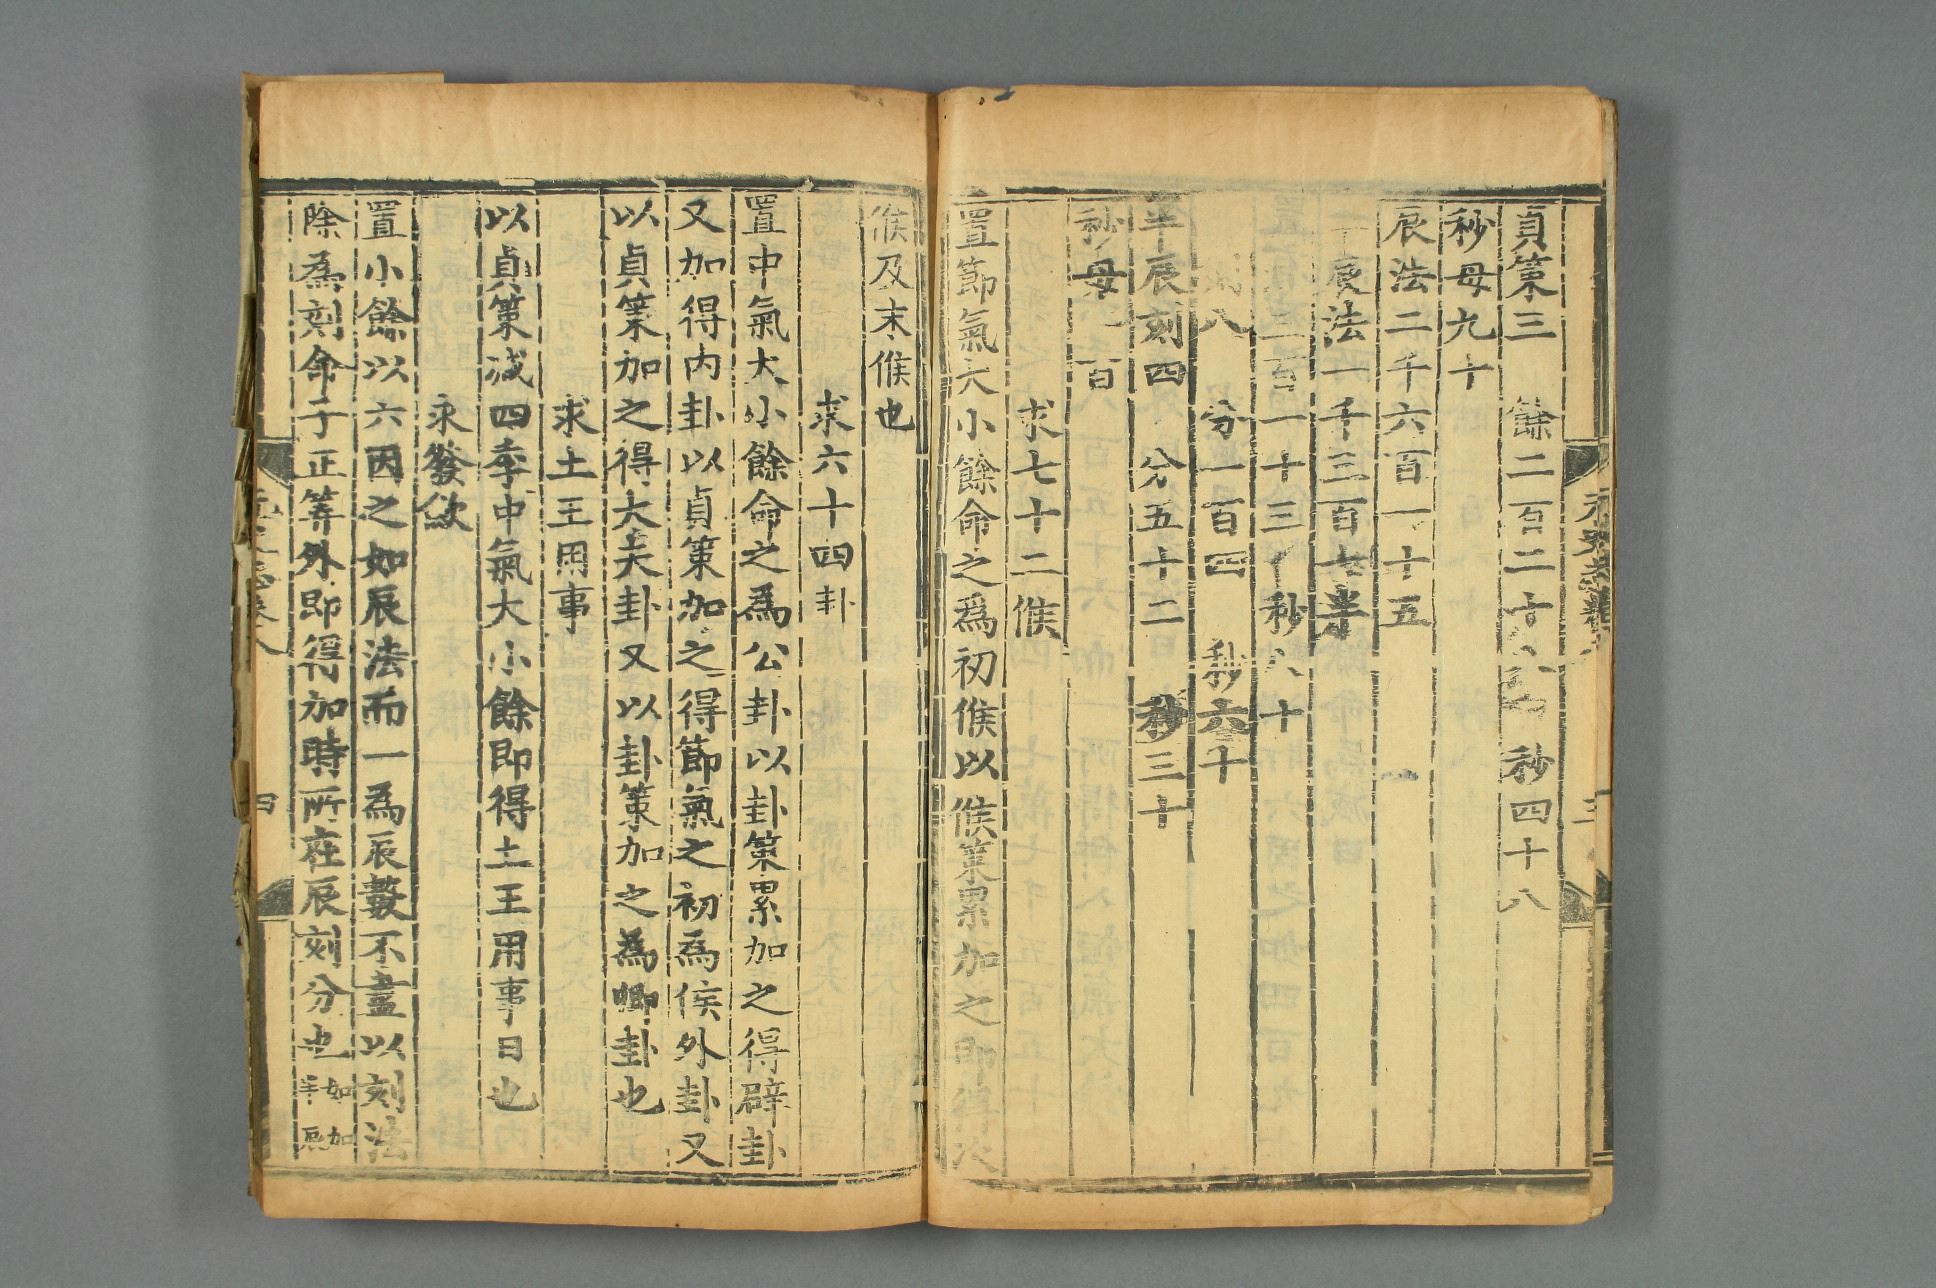 貞策三 餘二百二十 秒四十八
秒母九十
辰法二千六百一十五
辰法一千三百七半
三百一十三 秒八十
八 分一百四 秒六十
半辰刻四 分五十二 秒三十
秒母 百
求七十二候
置節氣大小餘命之爲初候以候策累加之即得次
候及末候也
求六十四卦
置中氣大小餘命之爲公卦以卦策累加之得辟卦
又加得内卦以貞策加之得節氣之初爲侯外卦又
以貞策加之得大夫卦又以卦策加之爲卿卦也
求土王用事
以貞策減四季中氣大小餘即得土王用事日也
求發斂
置小餘以六因之如辰法而一爲辰數不盡以刻法
除爲刻命子正筭外即得加時所在辰刻分也如加半辰
四